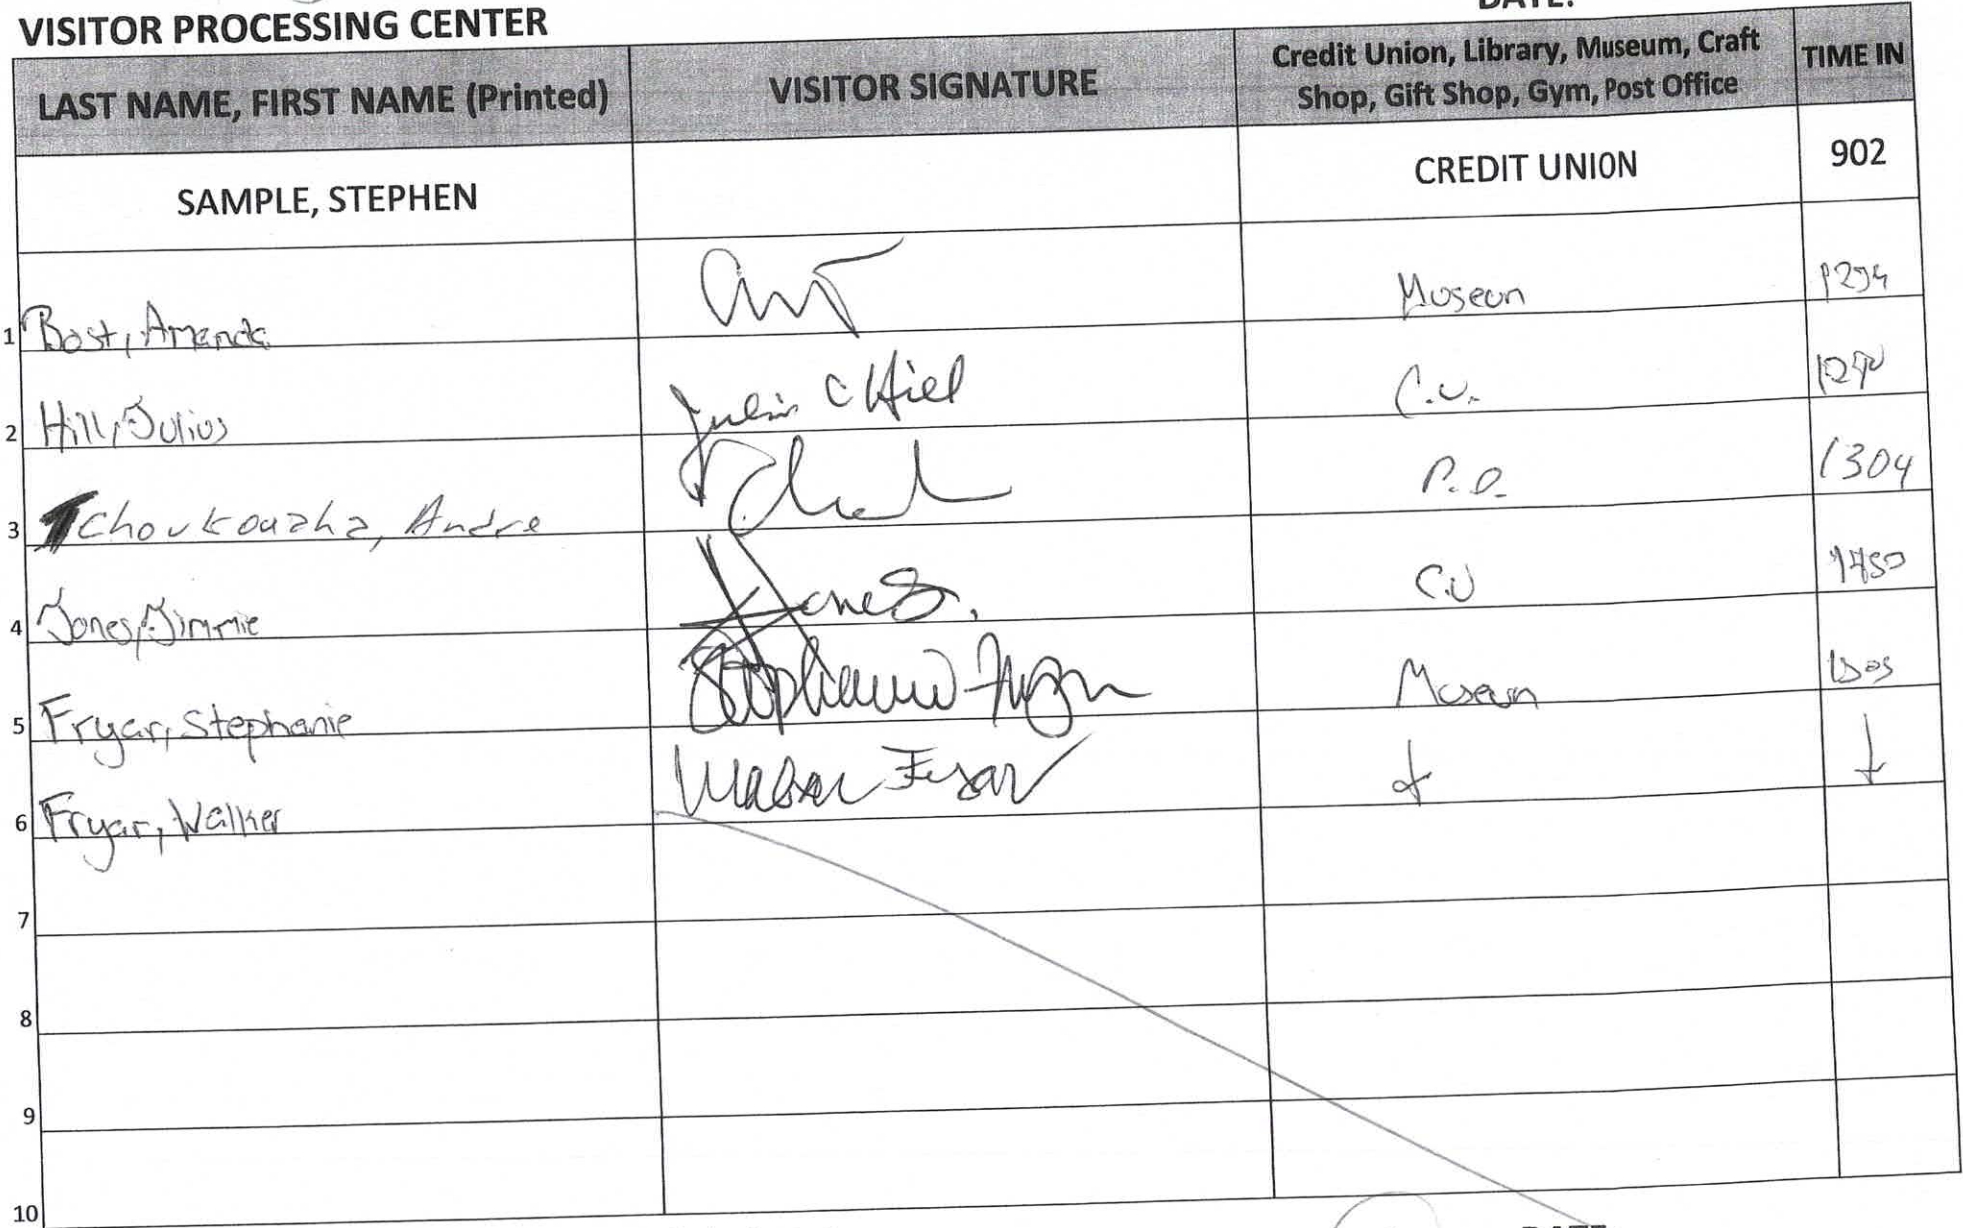 DATE:
VISITOR PROCESSING CENTER
LAST NAME, FIRST NAME (Printed) VISITOR SIGNATURE Credit Union, Library, Museum, Craft Shop, Gift Shop, Gym, Post Office TIME IN
SAMPLE, STEPHEN CREDIT UNION 902
1 Bost, Amanda Museum
2 Hill, Julius Julius C Hill C.U.
3 Tchoukouaha, Andre P.O. 1304
4 Jones, Jimmie Jones. C.U
5 Fryar, Stephanie Stephanie Fryar Museum
6 Fryar, Walker Walker Fryar
7
8
9
10